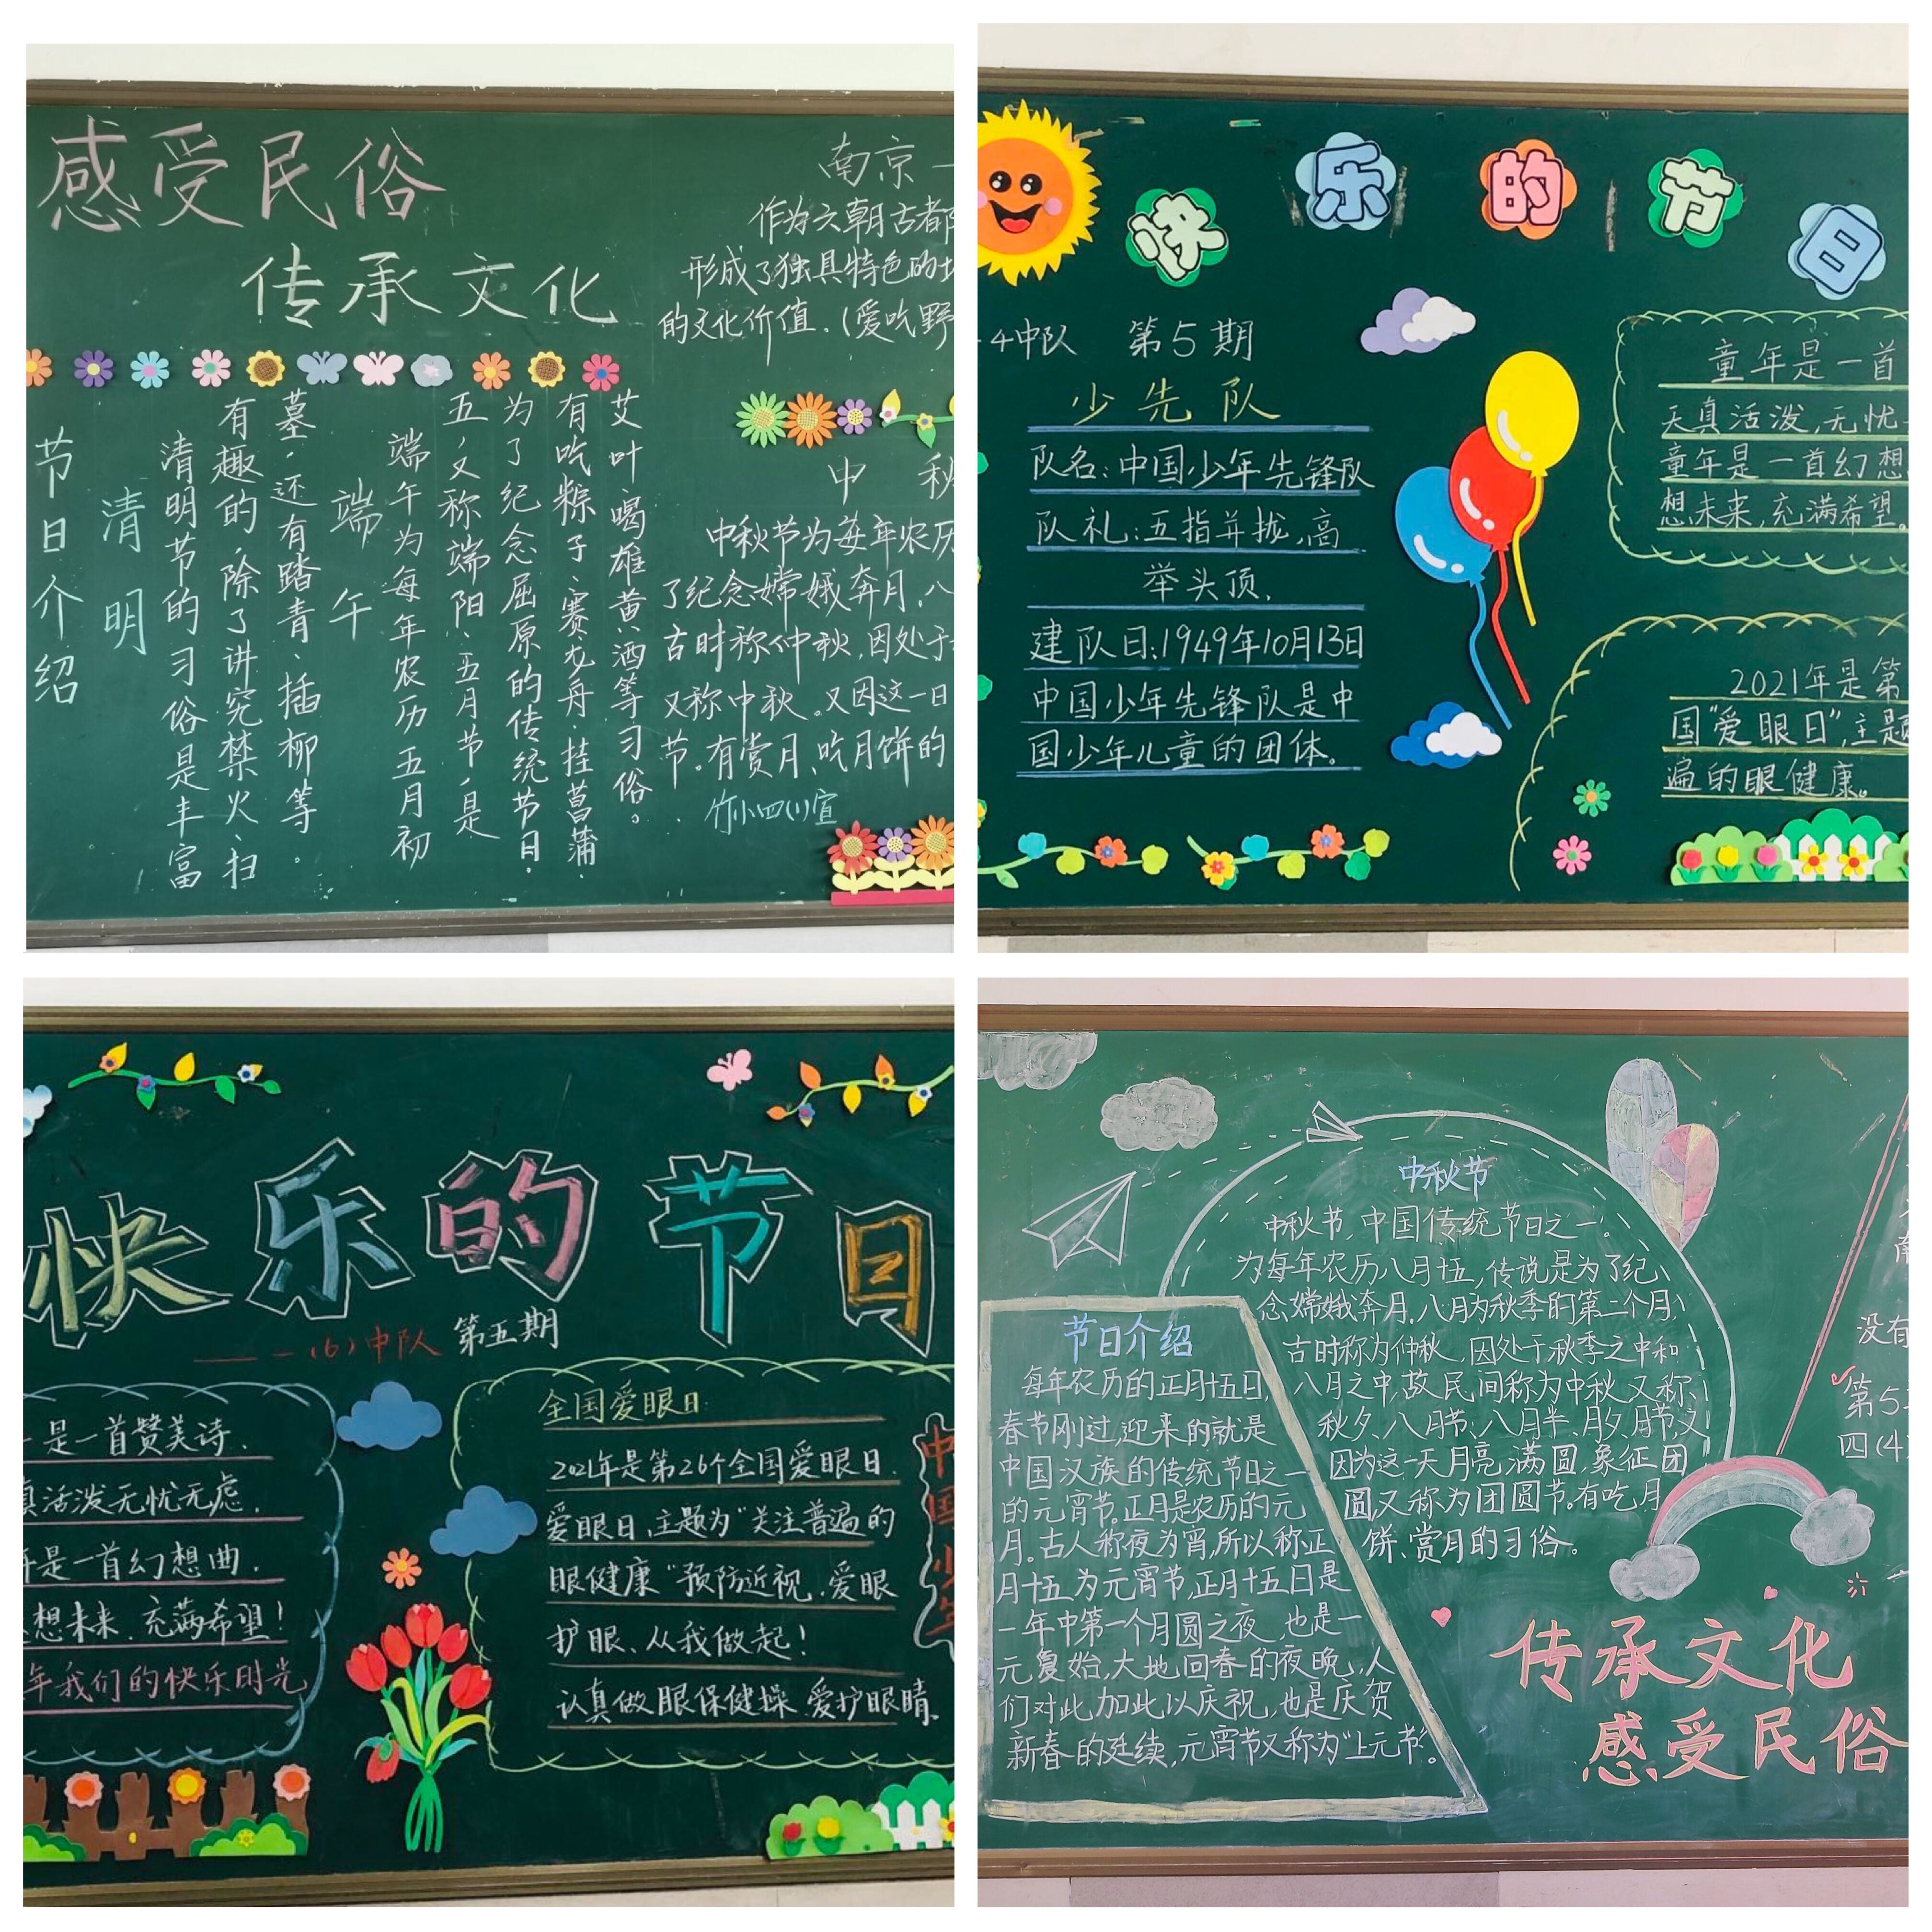 感受民俗
传承文化
节日介绍
清明
清明节的习俗是丰富
有趣的,除了讲究禁火、扫
墓,还有踏青、插柳等。
端午
端午为每年农历五月初
五,又称端阳、五月节,是
为了纪念屈原的传统节日。
有吃粽子、赛龙舟、挂菖蒲、
艾叶喝雄黄酒等习俗。
南京一
作为六朝古都
形成了独具特色的
的文化价值。(爱吃野
中秋
中秋节为每年农历
了纪念嫦娥奔月。八
古时称仲秋,因处于
又称中秋。又因这一日
节。有赏月、吃月饼的
竹小四(1)宣
快乐的节日
4中队 第5期
少先队
队名:中国少年先锋队
队礼:五指并拢,高
举头顶.
建队日:1949年10月13日
中国少年先锋队是中
国少年儿童的团体。
童年是一首
天真活泼,无忧
童年是一首幻想
想未来,充满希望。
2021年是第
国“爱眼日”,主题
遍的眼健康。
快乐的节日
——一(6)中队 第五期
是一首赞美诗.
真活泼无忧无虑.
是一首幻想曲.
想未来.充满希望!
年我们的快乐时光
全国爱眼日:
2021年是第26个全国爱眼日.
爱眼日,主题为“关注普遍的
眼健康“预防近视.爱眼
护眼、从我做起!
认真做眼保健操.爱护眼睛。
中国少年
中秋节
中秋节,中国传统节日之一。
为每年农历八月十五,传说是为了纪
念嫦娥奔月.八月为秋季的第二个月,
古时称为仲秋,因处于秋季之中和
八月之中,故民间称为中秋,又称
秋夕、八月节、八月半、月夕、月节,又
因为这一天月亮满圆,象征团
圆,又称为团圆节。有吃月
饼、赏月的习俗。
节日介绍
每年农历的正月十五日,
春节刚过,迎来的就是
中国汉族的传统节日之一
的元宵节。正月是农历的元
月。古人称夜为宵,所以称正
月十五为元宵节,正月十五日是
一年中第一个月圆之夜,也是一
元复始,大地回春的夜晚,人
们对此加此以庆祝,也是庆贺
新春的延续,元宵节又称为“上元节”。
传承文化
感受民俗
没有
第5
四(4)